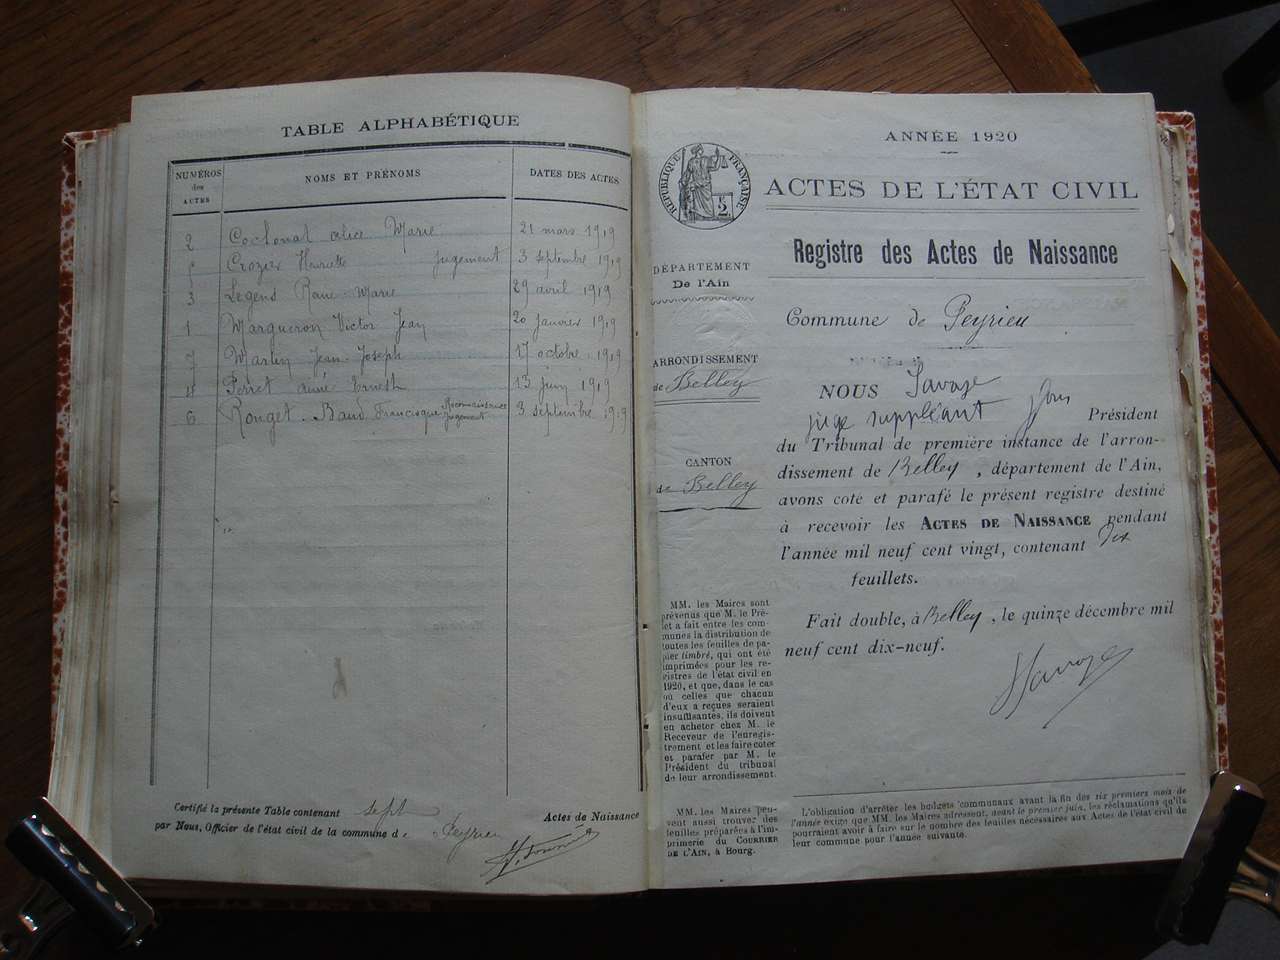 TABLE ALPHABÉTIQUE
NUMÉROS des ACTES
NOMS ET PRÉNOMS
DATES DES ACTES
2 Cochonat Alice Marie 21 mars 1919
5 Crozier Henriette jugement 3 septembre 1919
3 Legend Marie 29 avril 1919
1 Marqueron Victor Jean 20 janvier 1919
7 Martin Jean Joseph 17 octobre 1919
4 Perret Aimé Ernest 13 juin 1919
6 Rouget-Baud Francisque Reconnaissance jugement 3 septembre 1919
Certifié la présente Table contenant sept Actes de Naissance
par Nous, Officier de l'état civil de la commune de Peyrieu
ANNÉE 1920
RÉPUBLIQUE FRANÇAISE
2
ACTES DE L'ÉTAT CIVIL
Registre des Actes de Naissance
DÉPARTEMENT
De l'Ain
ARRONDISSEMENT
de Belley
CANTON
de Belley
MM. les Maires sont
prévenus que M. le Pré-
fet a fait entre les com-
munes la distribution de
toutes les feuilles de pa-
pier timbré, qui ont été
imprimées pour les re-
gistres de l'état civil en
1920, et que, dans le cas
où celles que chacun
d'eux a reçues seraient
insuffisantes, ils doivent
en acheter chez M. le
Receveur de l'enregis-
trement et les faire coter
et parafer par M. le
Président du tribunal
de leur arrondissement.
MM. les Maires peu-
vent aussi trouver des
feuilles préparées à l'im-
primerie du COURRIER
DE L'AIN, à Bourg.
Commune de Peyrieu
NOUS Savoye
juge suppléant pour Président
du Tribunal de première instance de l'arron-
dissement de Belley, département de l'Ain,
avons coté et parafé le présent registre destiné
à recevoir les ACTES DE NAISSANCE pendant
l'année mil neuf cent vingt, contenant dix
feuillets.
Fait double, à Belley, le quinze décembre mil
neuf cent dix-neuf.
Savoye
L'obligation d'arrêter les budgets communaux avant la fin des six premiers mois de
l'année exige que MM. les Maires adressent, avant le premier juin, les réclamations qu'ils
pourraient avoir à faire sur le nombre des feuilles nécessaires aux Actes de l'état civil de
leur commune pour l'année suivante.